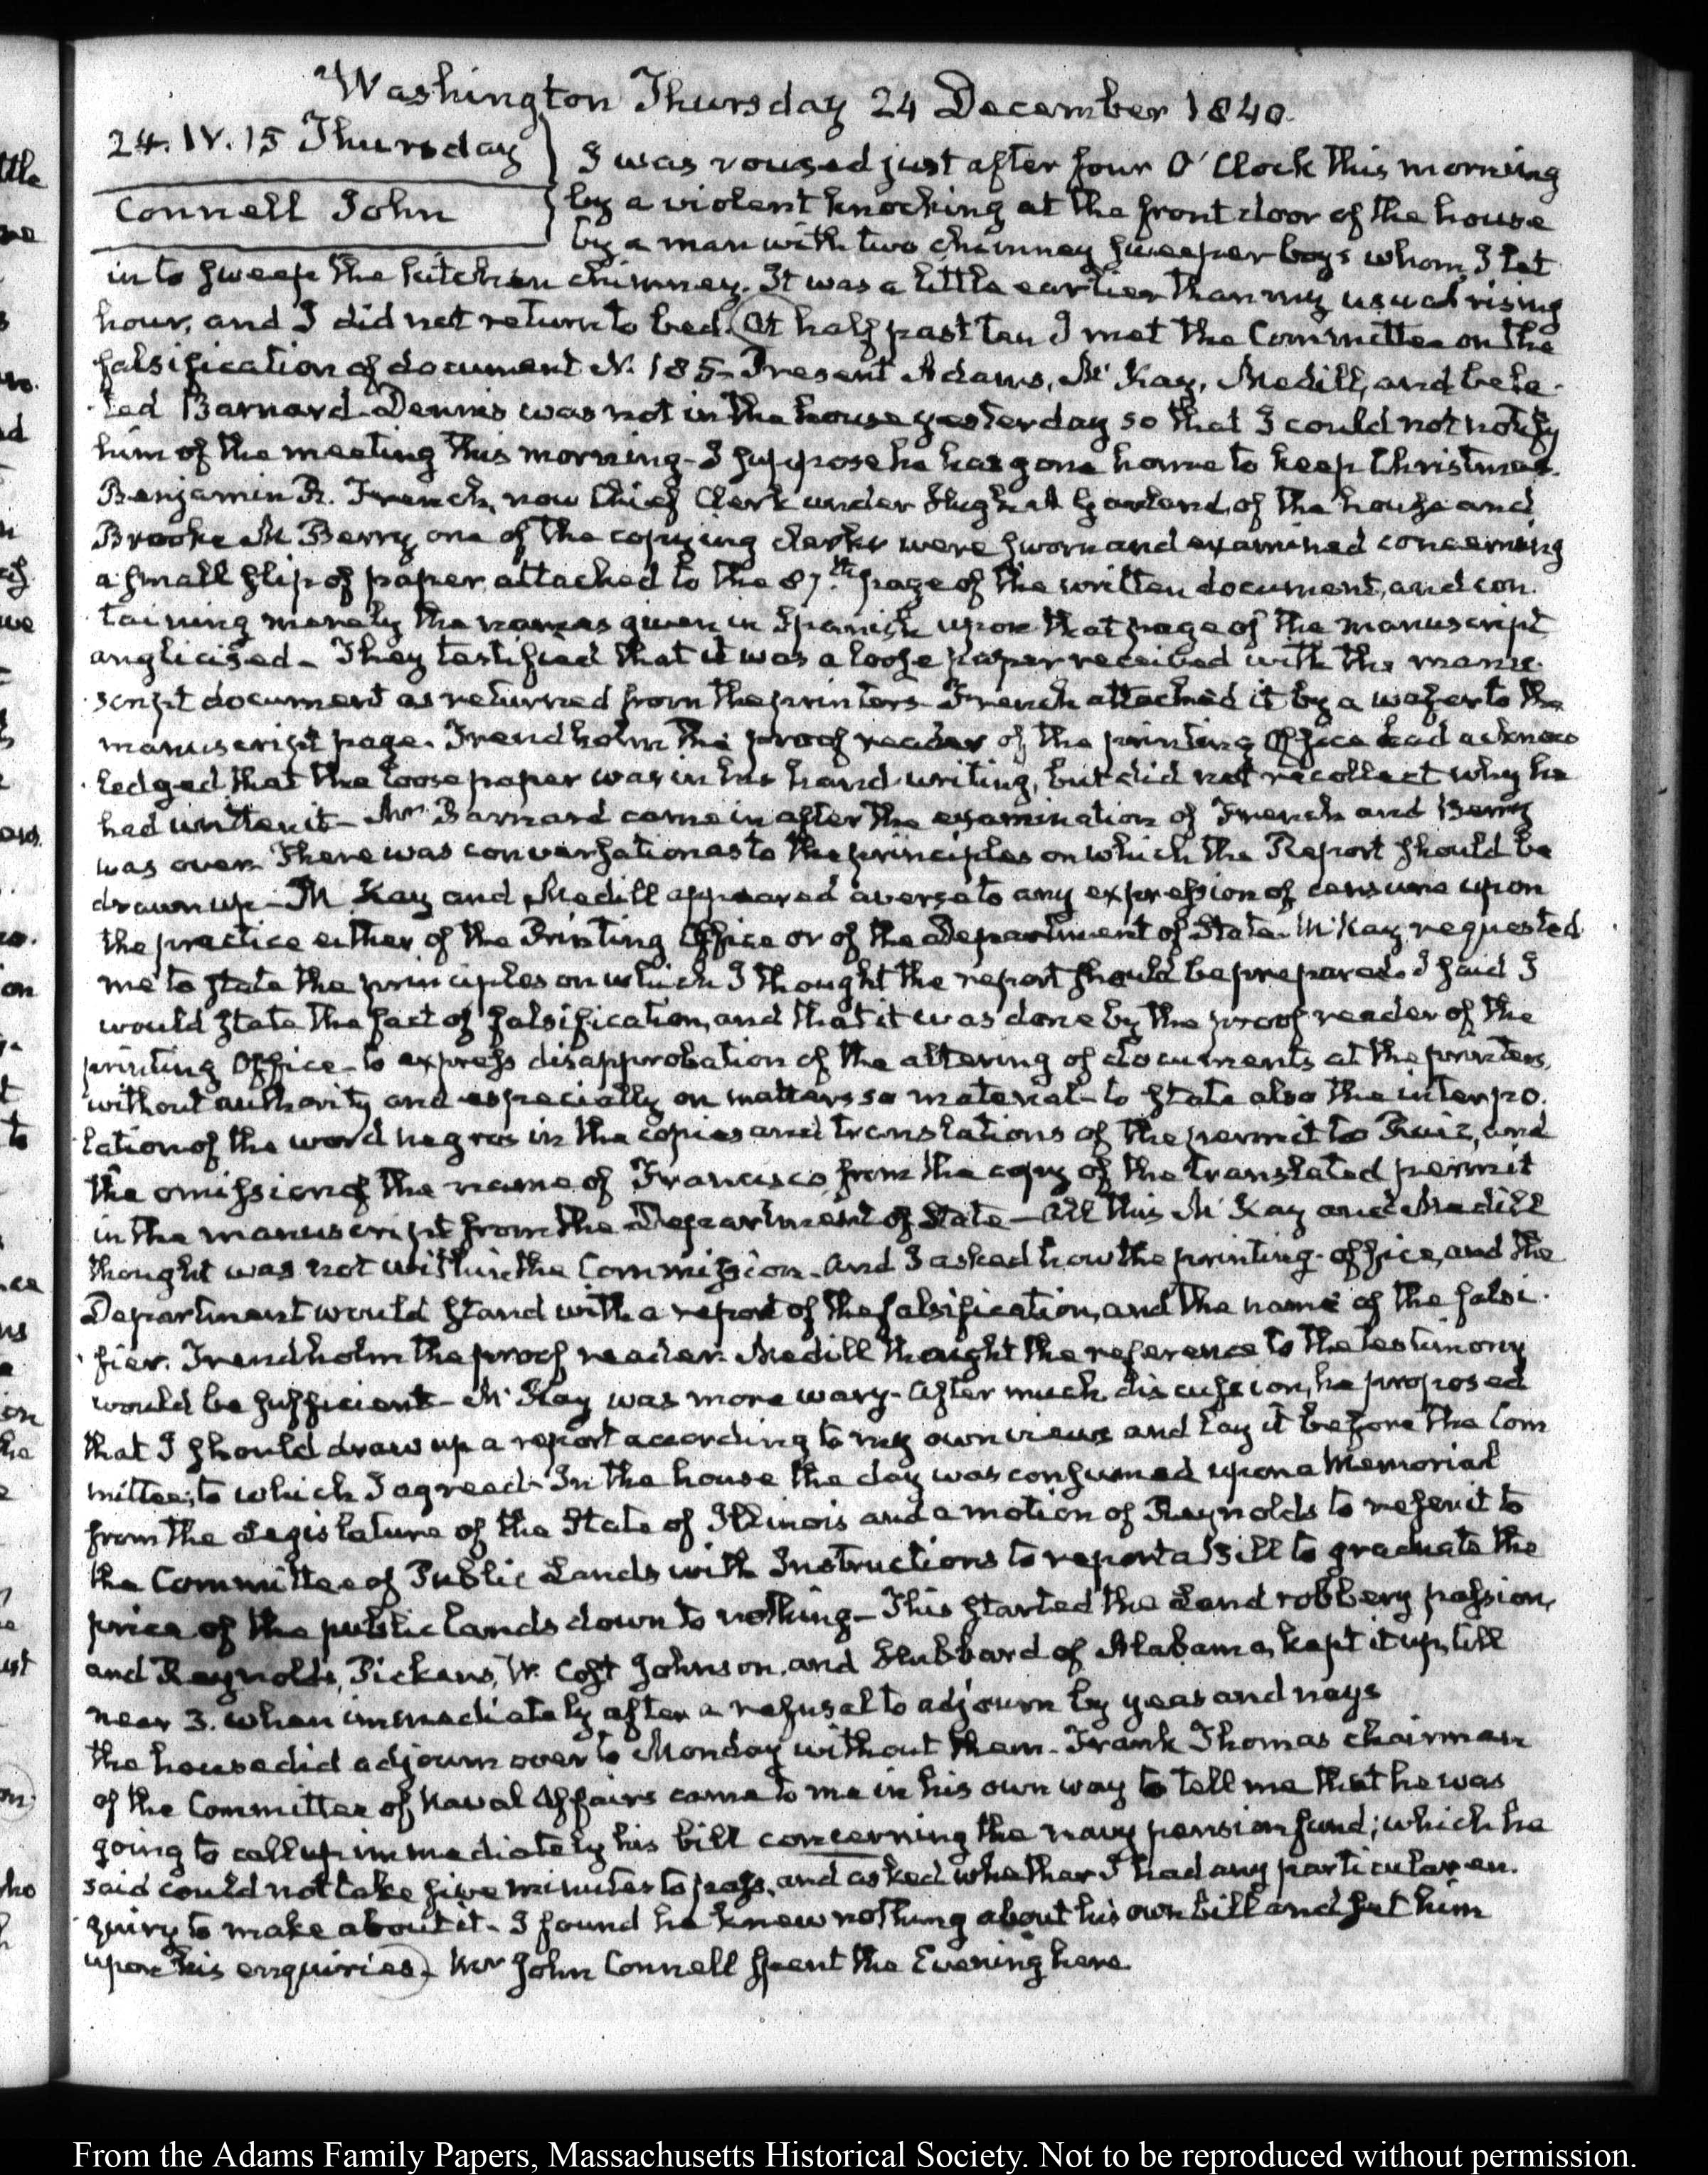 Washington Thursday 24 December 1840.
24. IV. 15 Thursday
Connell John
I was roused just after four O'Clock this morning
by a violent knocking at the front door of the house
by a man with two chimney sweeper boys whom I let
in to sweep the kitchen chimney. It was a little earlier than my usual rising
hour, and I did not return to bed. At half past ten I met the Committee on the
falsification of document N. 185– Present Adams, Mc Kay, Medill, and bela-
-ted Barnard– Dennis was not in the house yesterday so that I could not notify
him of the meeting this morning– I suppose he has gone home to keep Christmas.
Benjamin B. French, now Chief Clerk under Hugh A Garland, of the house and
Brooke M Berry one of the copying clerks were sworn and examined concerning
a small slip of paper, attached to the 87.th page of the written document, and con-
taining merely the names given in Spanish upon that page of the manuscript
anglicised– They testified that it was a loose paper received with the manu-
-script document as returned from the printers– French attached it by a wafer to the
manuscript page. Trendholm the proof reader of the printing Office had acknow
-ledged that the loose paper was in his hand-writing, but did not recollect why he
had written it– Mr Barnard came in after the examination of French and Berry
was over. There was conversation as to the principles on which the Report should be
drawn up– Mc Kay and Medill appeared averse to any expression of censure upon
the practice either of the Printing Office or of the Department of State– Mc Kay requested
me to state the principles on which I thought the report should be prepared. I said I
would state the fact of falsification, and that it was done by the proof reader of the
printing Office– to express disapprobation of the altering of documents at the printers,
without authority and especially on matters so material– to state also the interpo-
lation of the word negros in the copies and translations of the permit to Ruiz, and
the omission of the name of Francisco from the copy of the translated permit
in the manuscript from the Department of State– All this Mc Kay and Medill
thought was not within the Commission– And I asked how the printing-office, and the
Department would stand with a report of the falsification, and the name of the falsi-
-fier. Trendholm the proof reader. Medill thought the reference to the testimony
would be sufficient– Mc Kay was more wary– After much discussion, he proposed
that I should draw up a report according to my own views and lay it before the Com
mittee; to which I agreed– In the house the day was consumed upon a Memorial
from the Legislature of the State of Illinois and a motion of Reynolds to refer it to
the Committee of Public Lands with Instructions to report a Bill to graduate the
price of the public lands down to nothing– This started the Land robbery passion,
and Reynolds, Pickens, W. Cost Johnson, and Hubbard of Alabama, kept it up, till
near 3. when immediately after a refusal to adjourn by yeas and nays
the house did adjourn over to Monday without them– Frank Thomas chairman
of the Committee of Naval Affairs came to me in his own way to tell me that he was
going to call up immediately his bill concerning the navy pension fund; which he
said could not take five minutes to pass, and asked whether I had any particular en-
-quiry to make about it– I found he knew nothing about his own bill and put him
upon his enquiries– Mr John Connell spent the Evening here.
From the Adams Family Papers, Massachusetts Historical Society. Not to be reproduced without permission.